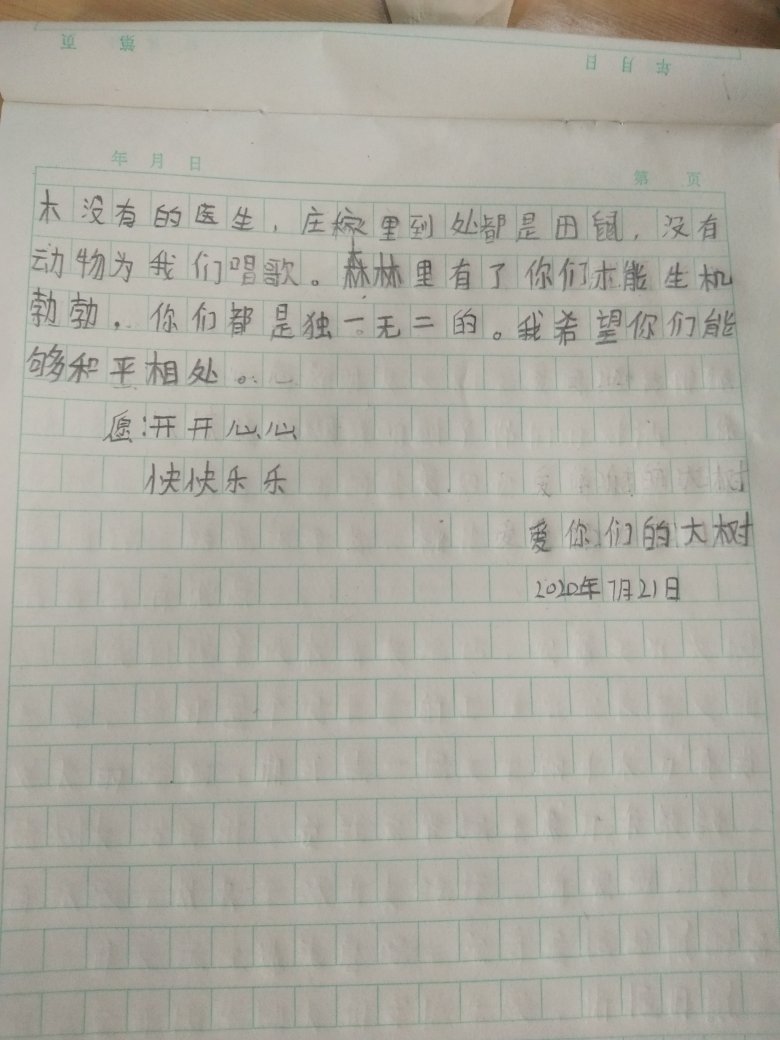 页 第
年 月 日
年 月 日
第 页
木没有的医生，庄稼里到处都是田鼠，没有
动物为我们唱歌。森林里有了你们才能生机
勃勃，你们都是独一无二的。我希望你们能
够和平相处。
愿：开开心心
快快乐乐
爱你们的大树
2020年7月21日